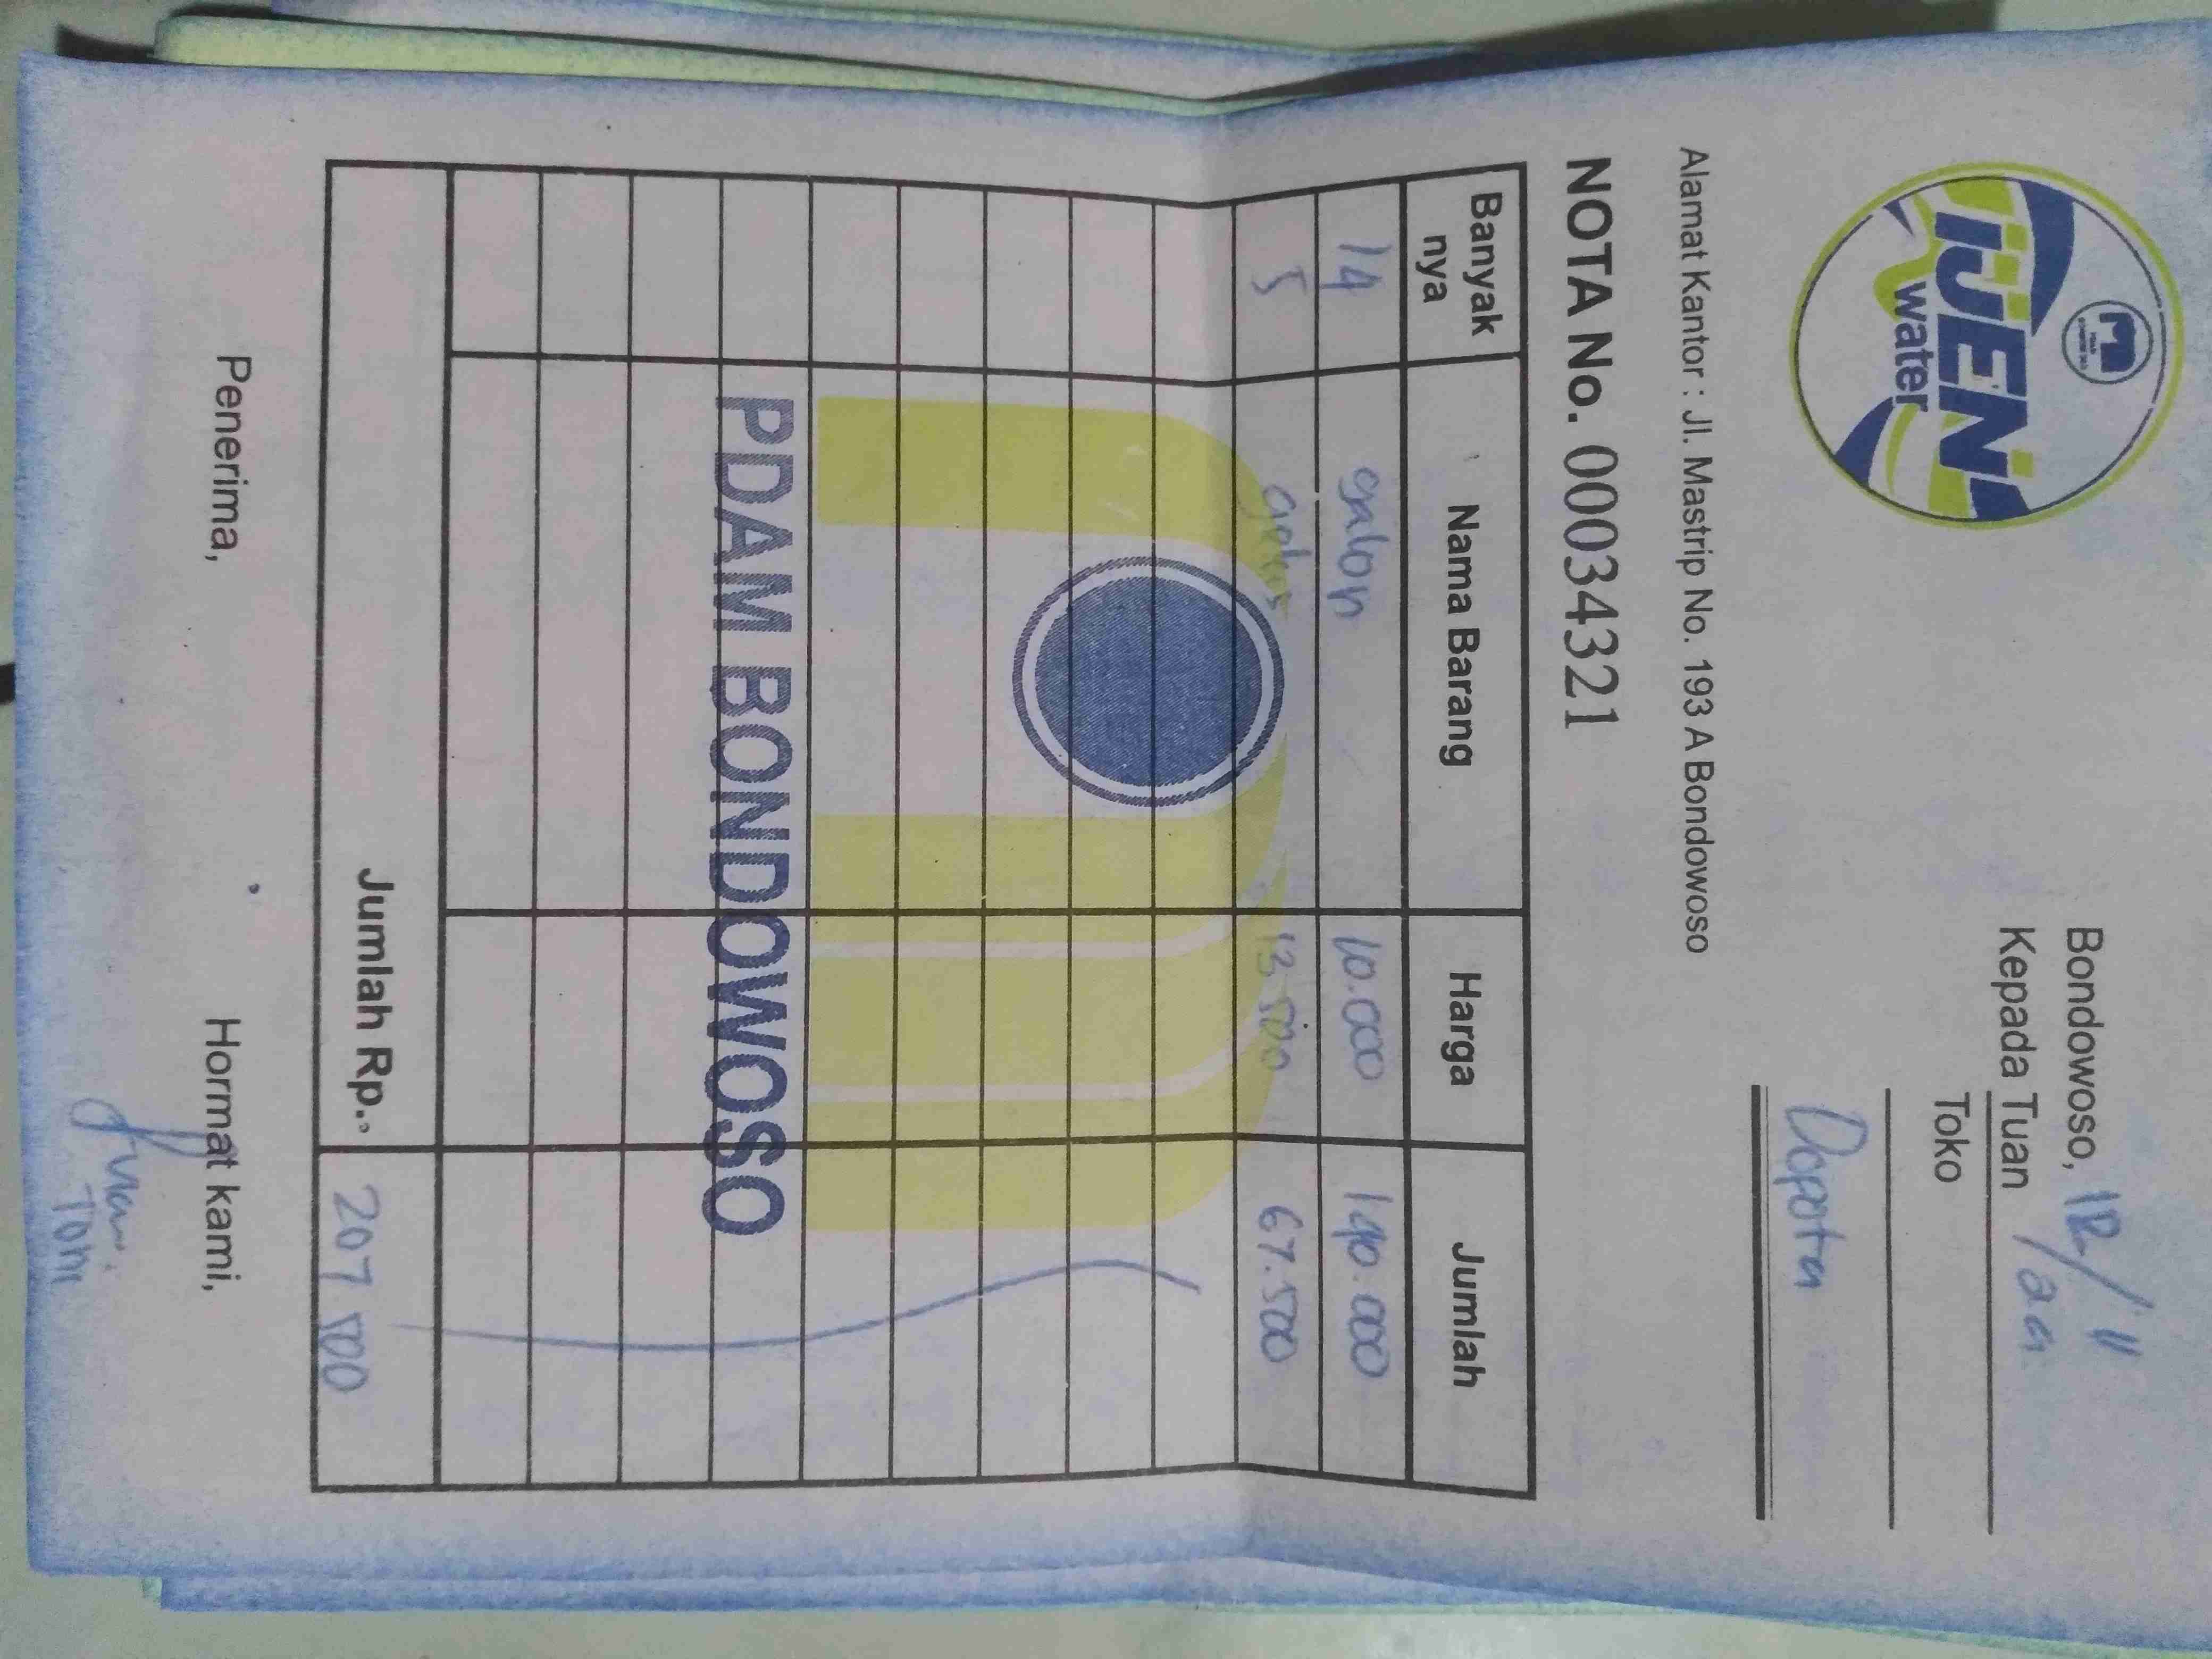 IJEN
water
Bondowoso, 12/11
Kepada Tuan /24
Toko
Alamat Kantor : Jl. Mastrip No. 193 A Bondowoso
NOTA No. 00034321
Banyak nya Nama Barang Harga Jumlah
14 galon 10.000 140.000
5 gelas 13.500 67.500
PDAM BONDOWOSO
Jumlah Rp.. 207.500
Penerima, Hormat kami,
Tomi